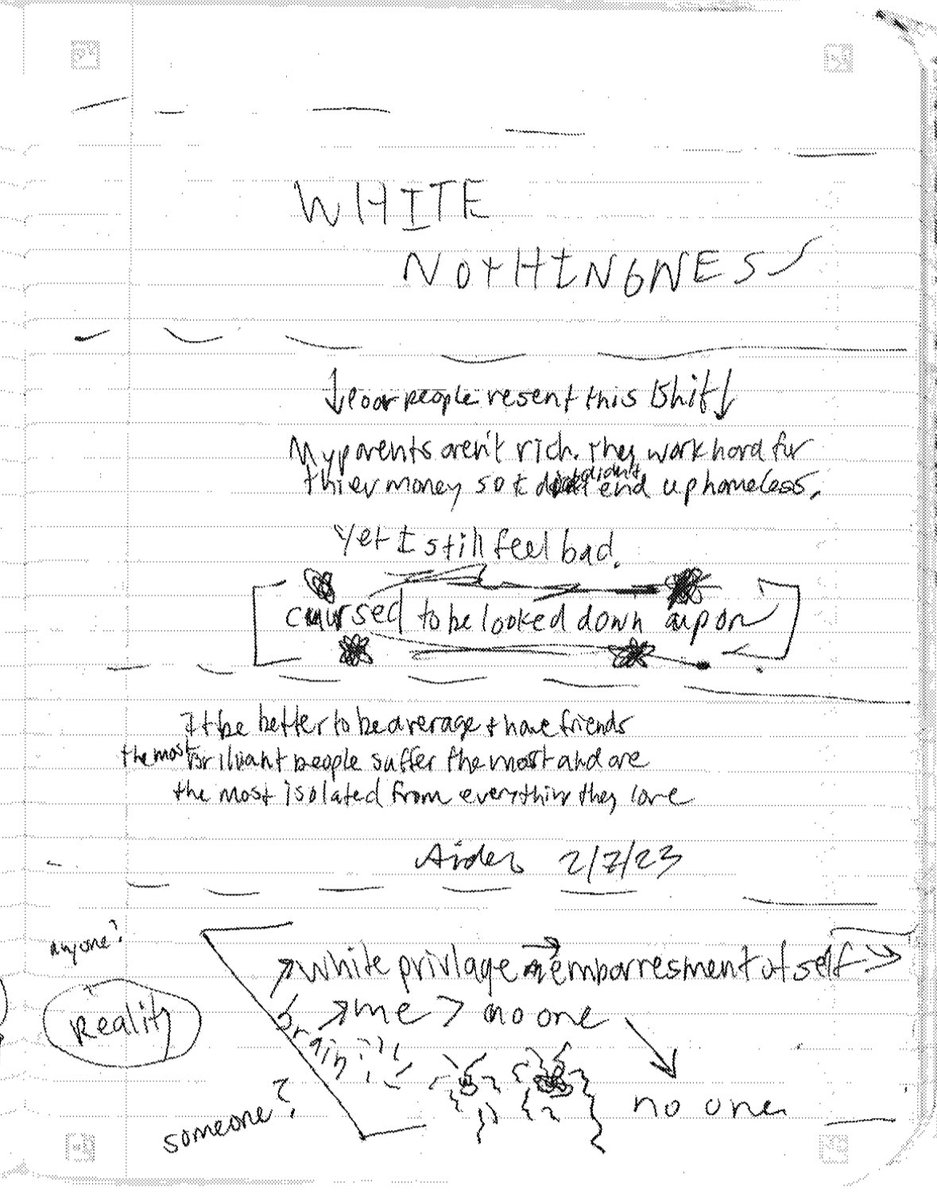 WHITE
NOTHINGNESS
↓Poor people resent this shit↓
My parents aren't rich. They work hard for
thier money so I didn't end up homeless.
Yet I still feel bad.
cursed to be looked down upon
It be better to be average + have friends
the most brilliant people suffer the most and are
the most isolated from everything they love
2/7/23
anyone?
Reality
white privlage → emborresment of self →
me > no one
brain
no one
someone?